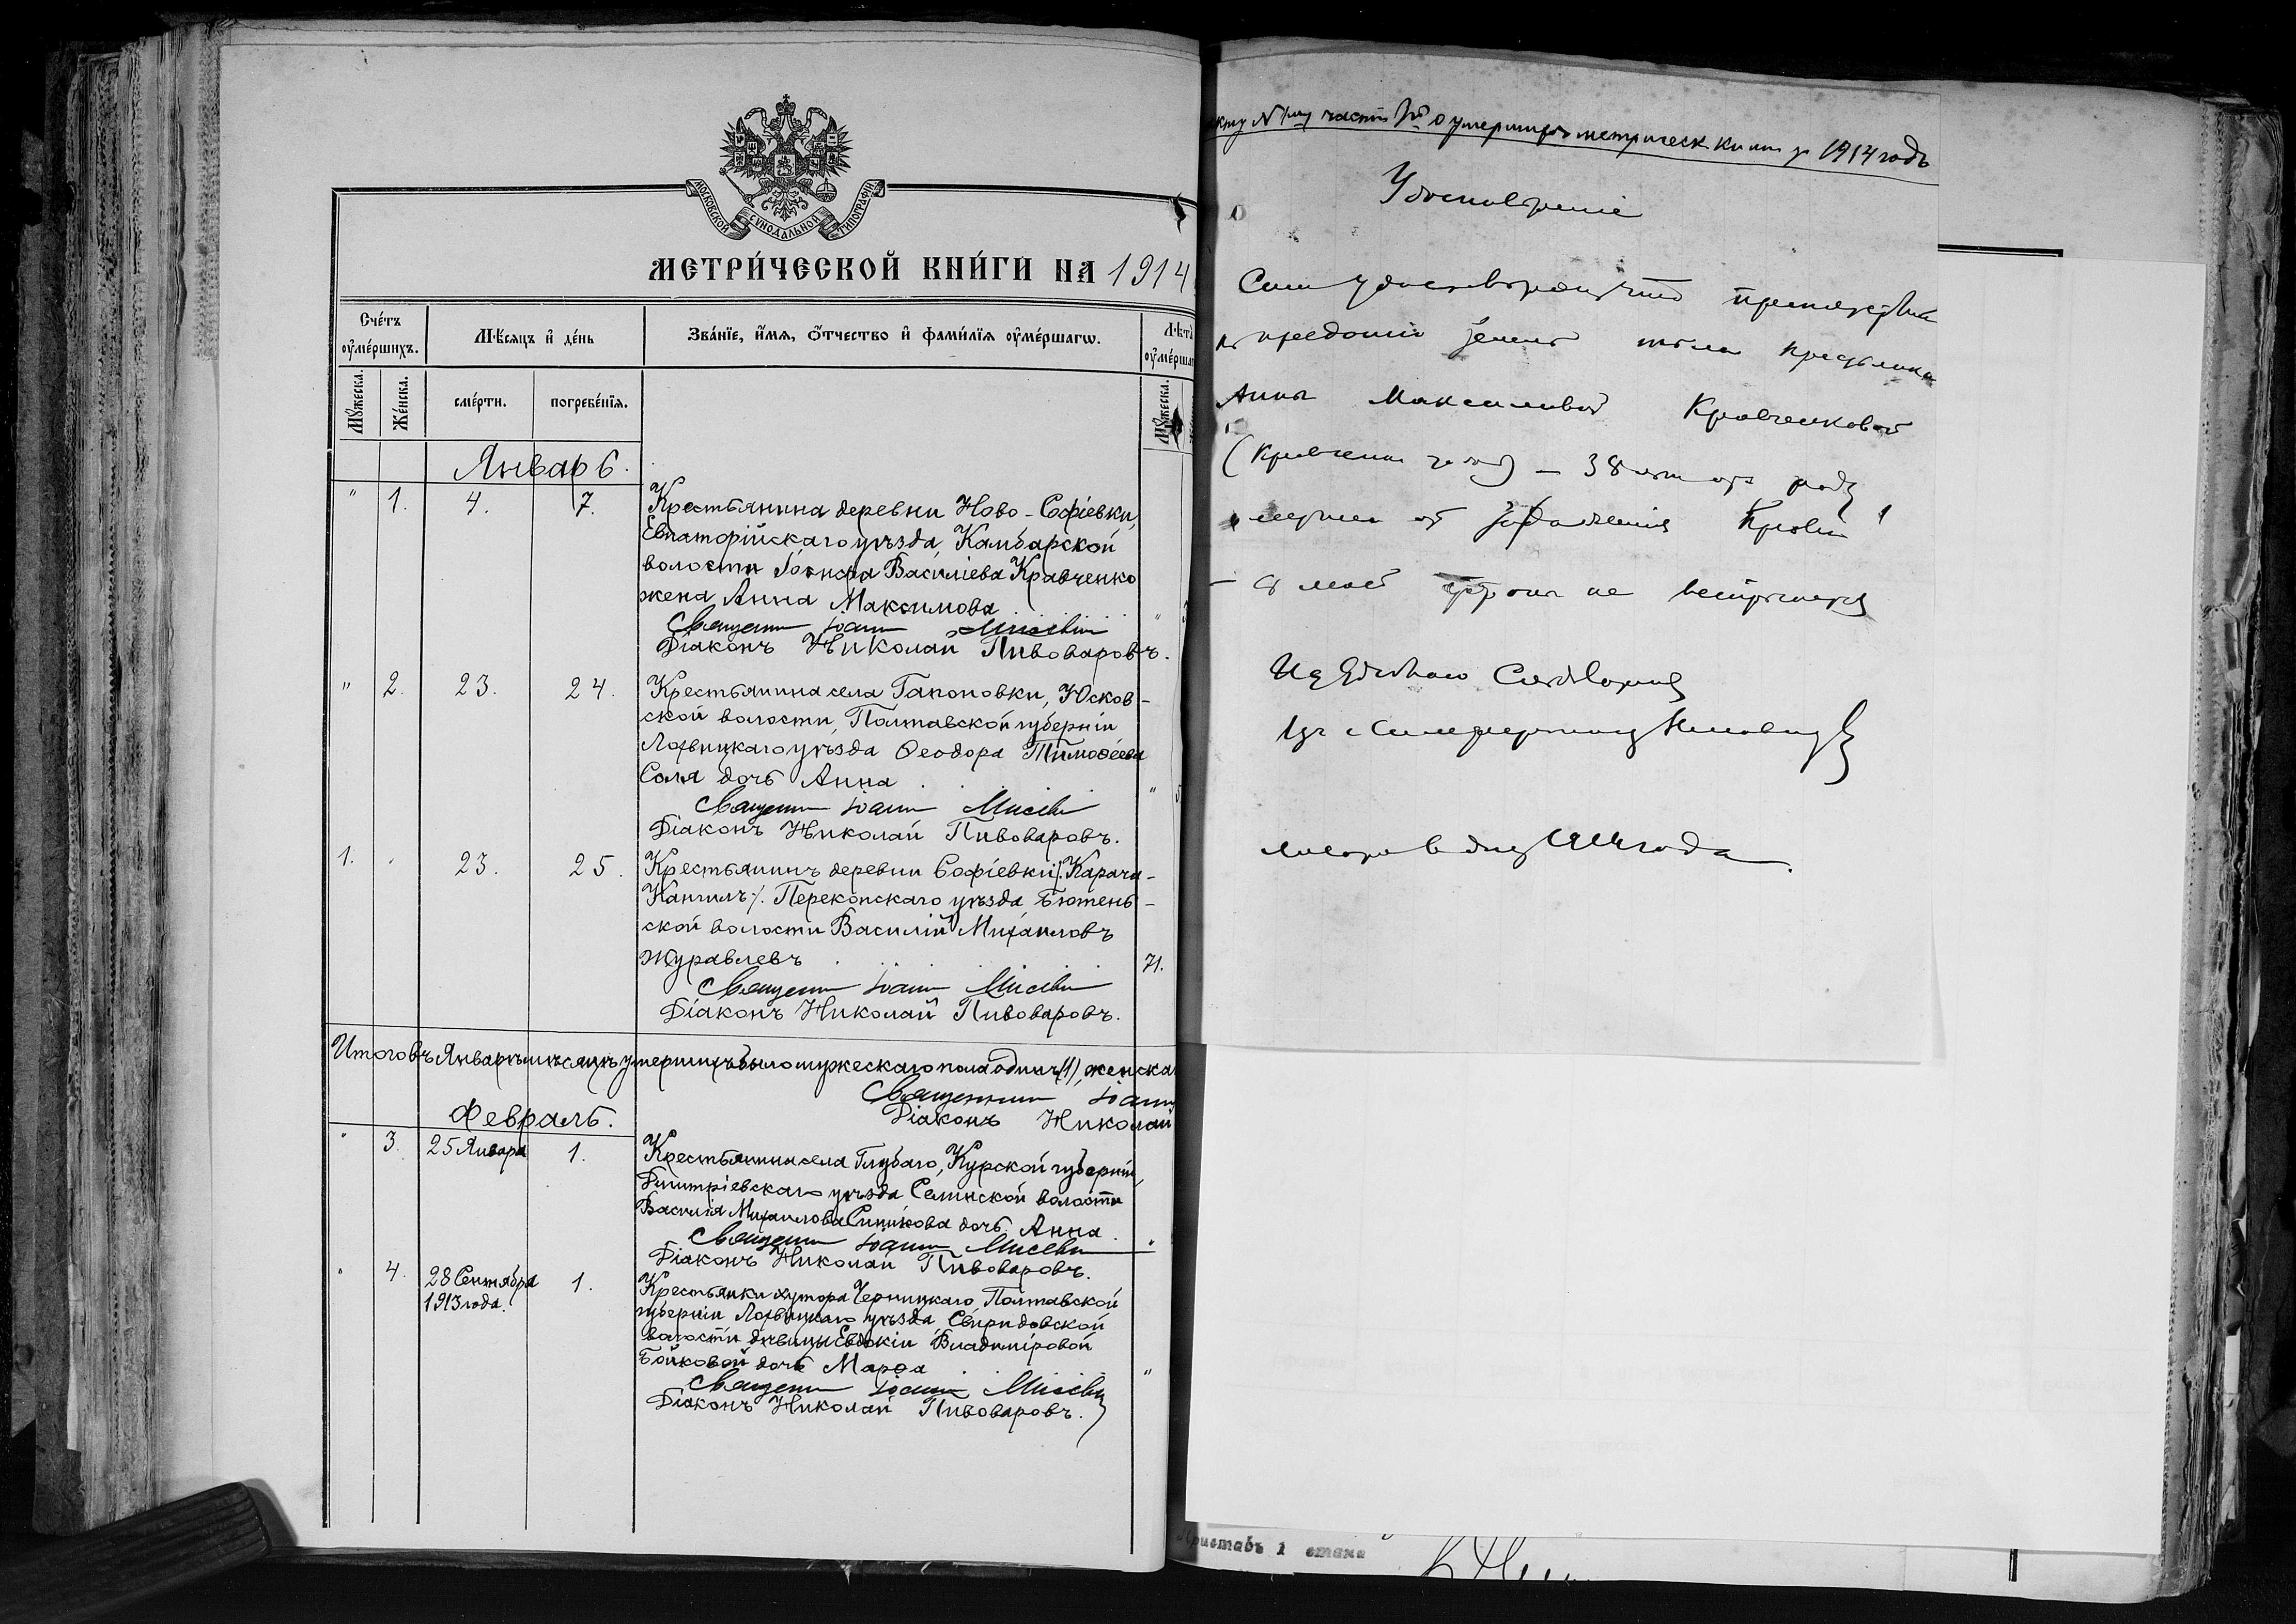 МОСКОВСКОЙ СѴНОДАЛЬНОЙ ТИПОГРАФІИ
МЕТРИ́ЧЕСКОЙ КНИ́ГИ НА 1914
Сче́тъ оу҆ме́ршихъ.
Мѣ́сѧцъ и҆ де́нь
Зва́нїе, и҆́мѧ, ѻ҆́тчество и҆ фами́лїѧ оу҆ме́ршагѡ.
Лѣ́т
оу҆ме́ршаг
Мꙋ́жеска.
Же́нска.
сме́рти.
погребе́нїѧ.
Мꙋ́жеска.
Январь.
" 1. 4. 7. Крестьянина деревни Ново-Софіевки,
Евпаторійскаго уѣзда, Камбарской
волости Іосифа Василіева Кравченко
жена Анна Максимова
Священн Іоанн
Діаконъ Николай Пивоваровъ.
" 2. 23. 24. Крестьянина села Гапоновки, Юсков-
ской волости, Полтавской губерніи
Лохвицкаго уѣзда Ѳеодора Тимоѳеева
Соля дочь Анна
Священн Іоанн
Діаконъ Николай Пивоваровъ.
1. 23. 25. Крестьянинъ деревни Софіевки /. Карача-
Кангилъ ./. Перекопскаго уѣзда, Бютень-
ской волости Василій Михаиловъ
Журавлевъ 71.
Священн Іоанн
Діаконъ Николай Пивоваровъ.
Итого въ Январѣ мѣсяцѣ умершихъ было мужескаго пола одинъ (1), женска
Священник Іоанн
Діаконъ Николай
Февраль.
" 3. 25 Января 1. Крестьянина села Глубаго, Курской губерніи,
Дмитріевскаго уѣзда Селинской волости
Василія Михаилова дочь Анна
Священн Іоанн
Діаконъ Николай Пивоваровъ.
" 4. 28 Сентября 1913 года. 1. Крестьянки хутора Черницкаго, Полтавской
губерніи Лохвицкаго уѣзда Свиридовской
волости дѣвицы Евдокіи Владиміровой
Бойковой дочь Марѳа "
Священн Іоанн
Діаконъ Николай Пивоваровъ.
части о умерших метрическ книги 1914 годъ
Удостовѣреніе
Сим удостовѣряю, что препятствий
к преданію землѣ тѣла
Анны Максимовой Кравченковой
38 лѣт
от зараженія крови
не
1914 года.
Приставъ 1 стана